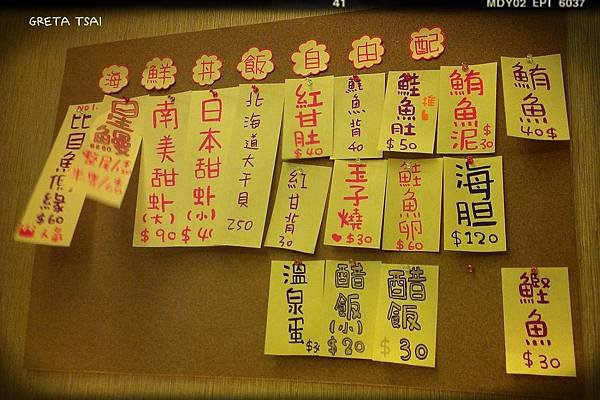 41
MDY02 EPI 6037
GRETA TSAI
海鮮丼飯自由配
NO1.
比目魚鰭緣
$60
皇鰻
南美甜虾(大)
$90
日本甜虾(小)
$40
北海道大干貝
250
紅甘肚
$40
鮭魚背
40
鮭魚肚
$50
鮪魚泥
$30
鮪魚
40$
紅甘背
30
玉子燒
$30
鮭魚卵
$60
海胆
$120
溫泉蛋
醋飯(小)
$20
醋飯
$30
鰹魚
$30